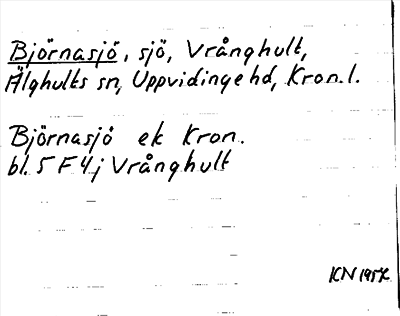 Björnasjö, sjö, Vrånghult,
Älghults sn, Uppvidinge hd, Kron. l.
Björnasjö ek Kron.
bl. 5 F 4 j Vrånghult